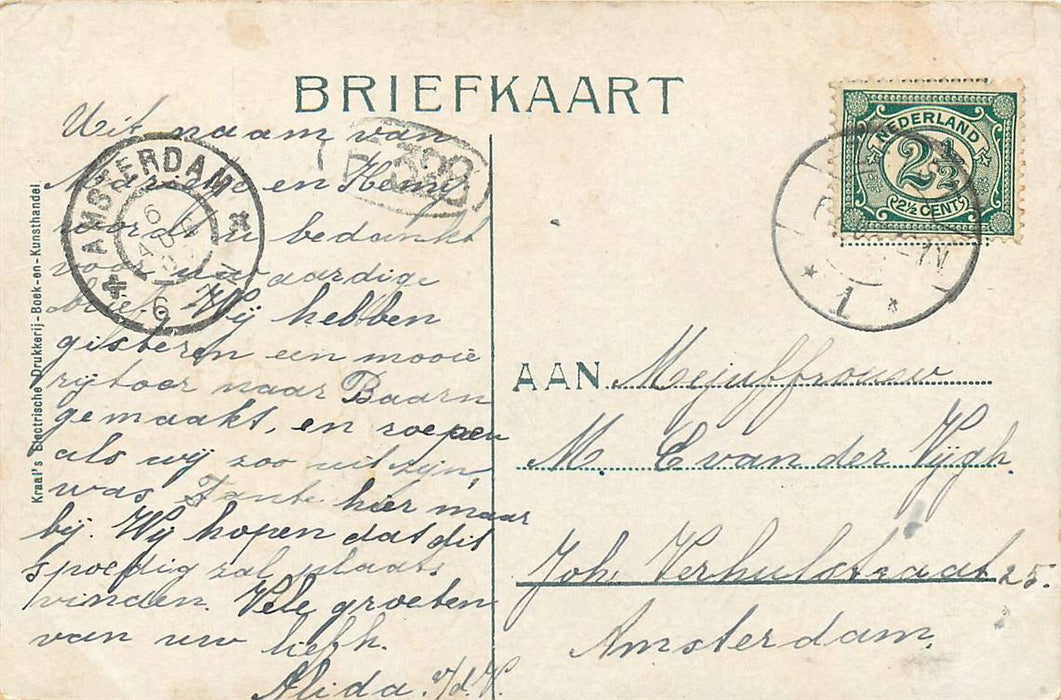 BRIEFKAART
Uit naam van
en Henny
wordt u bedankt
voor uw aardige
brief. Wij hebben
gisteren een mooie
rijtoer naar Baarn
gemaakt, en roepen
als wij zoo uit zijn,
was Tante hier maar
bij. Wij hopen dat dit
spoedig zal plaats
vinden. Vele groeten
van uw liefh.
Alida v/d V
Kraal's Electrische Drukkerij-Boek-en-Kunsthandel
AMSTERDAM
6
328
NEDERLAND
2½
2½ CENT
1
AAN Mejuffrouw
M. C van der Vijgh.
Joh. Verhulstraat 25.
Amsterdam.